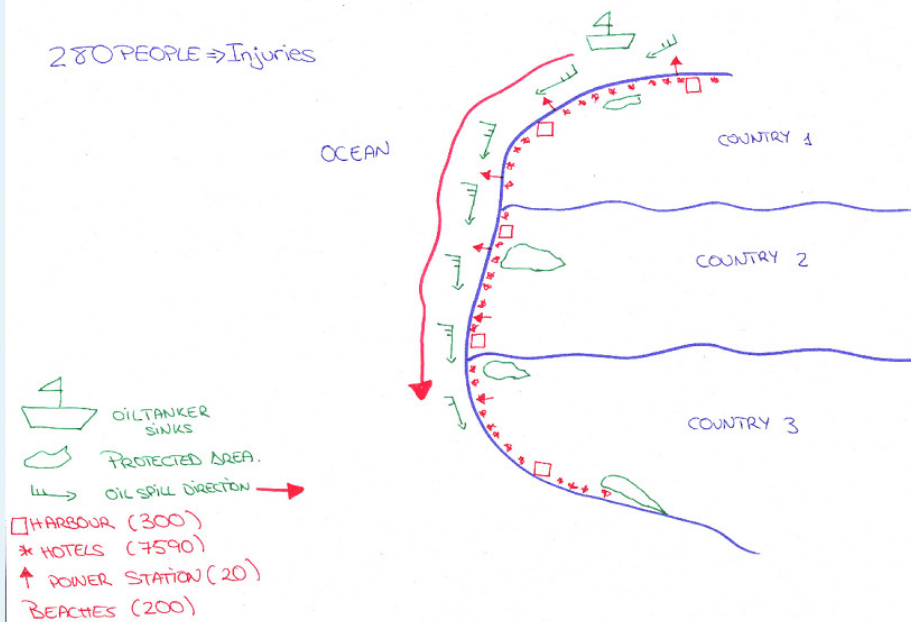 280 PEOPLE => Injuries
OCEAN
COUNTRY 1
COUNTRY 2
COUNTRY 3
OILTANKER
SINKS
PROTECTED AREA.
OIL SPILL DIRECTION
HARBOUR (300)
HOTELS (7590)
POWER STATION (20)
BEACHES (200)